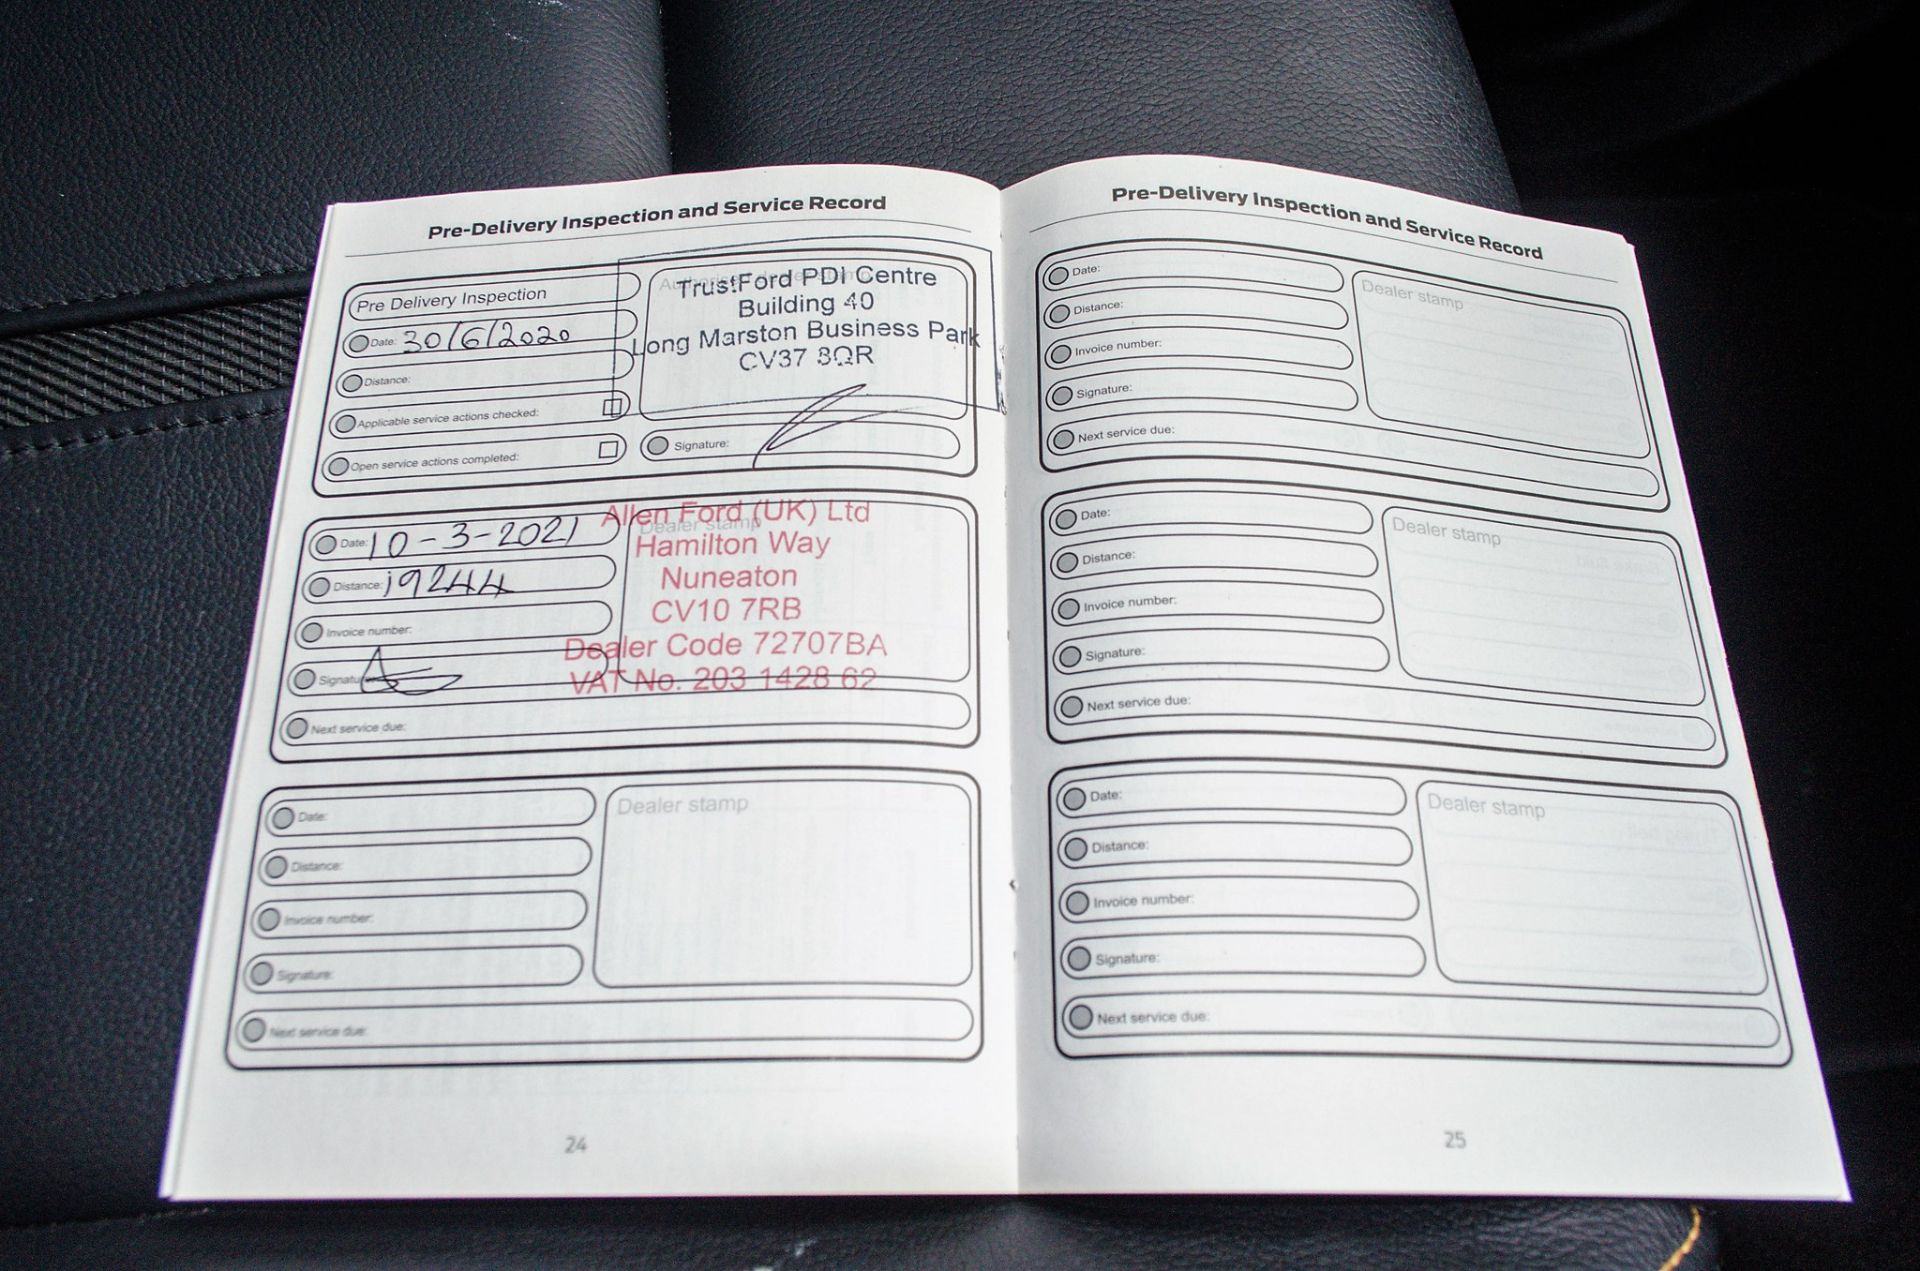 Pre-Delivery Inspection and Service Record
Pre Delivery Inspection
Date: 30/6/2020
Distance:
Applicable service actions checked:
Open service actions completed:
TrustFord PDI Centre
Building 40
Long Marston Business Park
CV37 8QR
Signature:
Date: 10-3-2021
Distance: 19244
Invoice number:
Signature:
Next service due:
Dealer stamp
Allen Ford (UK) Ltd
Hamilton Way
Nuneaton
CV10 7RB
Dealer Code 72707BA
VAT No. 203 1428 62
Date:
Distance:
Invoice number:
Signature:
Next service due:
Dealer stamp
24
Pre-Delivery Inspection and Service Record
Date:
Distance:
Invoice number:
Signature:
Next service due:
Dealer stamp
Date:
Distance:
Invoice number:
Signature:
Next service due:
Dealer stamp
Date:
Distance:
Invoice number:
Signature:
Next service due:
Dealer stamp
25